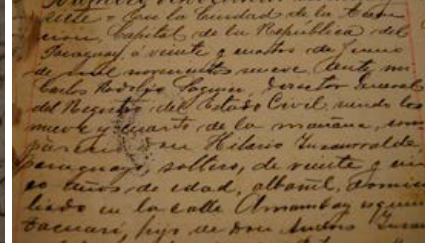 siete = En la Ciudad de la Asun
cion, Capital de la Republica del
Paraguay, á veinte y cuatro de Junio
de mil novecientos nueve, ante mi
Carlos Rodolfo, Director General
del Registro del Estado Civil, siendo las
nueve y cuarto de la mañana, com
pareció Don Hilario Insaurralde
paraguayo, soltero, de veinte y cin
co años de edad, albañil, domici
liado en la calle Amambay esquina
Tacuarí, hijo de Don